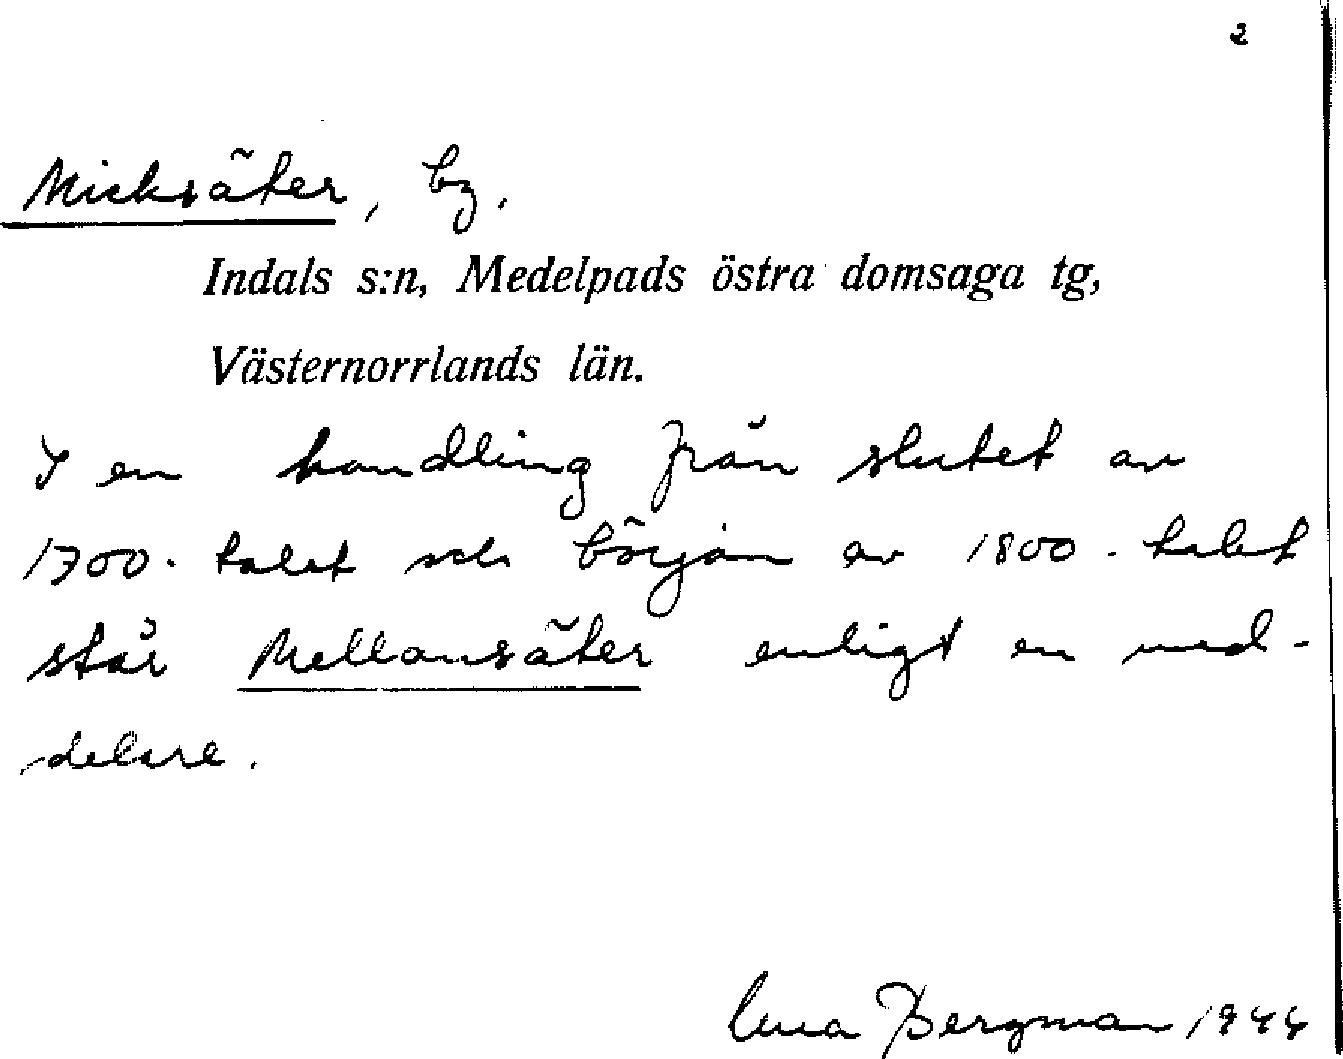 2
Micksäter, by.
Indals s:n, Medelpads östra domsaga tg,
Västernorrlands län.
I en handling från slutet av
1700-talet och början av 1800-talet
står Mellansäter enligt en med-
delare.
Bergman 1944